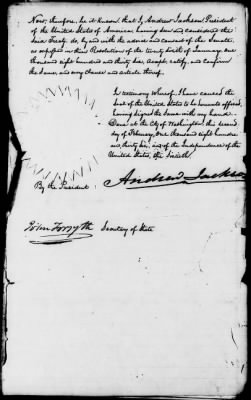 Now, therefore, be it known that I, Andrew Jackson, President
of the United States of America, having seen and considered the
said Treaty, do, by and with the advice and consent of the Senate,
as expressed in their Resolution of the twenty sixth of January, one
thousand eight hundred and thirty six, accept, ratify, and confirm
the same, and every clause and article thereof.
In testimony whereof, I have caused the
Seal of the United States to be hereunto affixed,
having signed the same with my hand.
Done at the City of Washington, this second
day of February, one thousand eight hundred
and thirty six, and of the Independence of the
United States, the Sixtieth.
Andrew Jackson
By the President:
John Forsyth Secretary of State